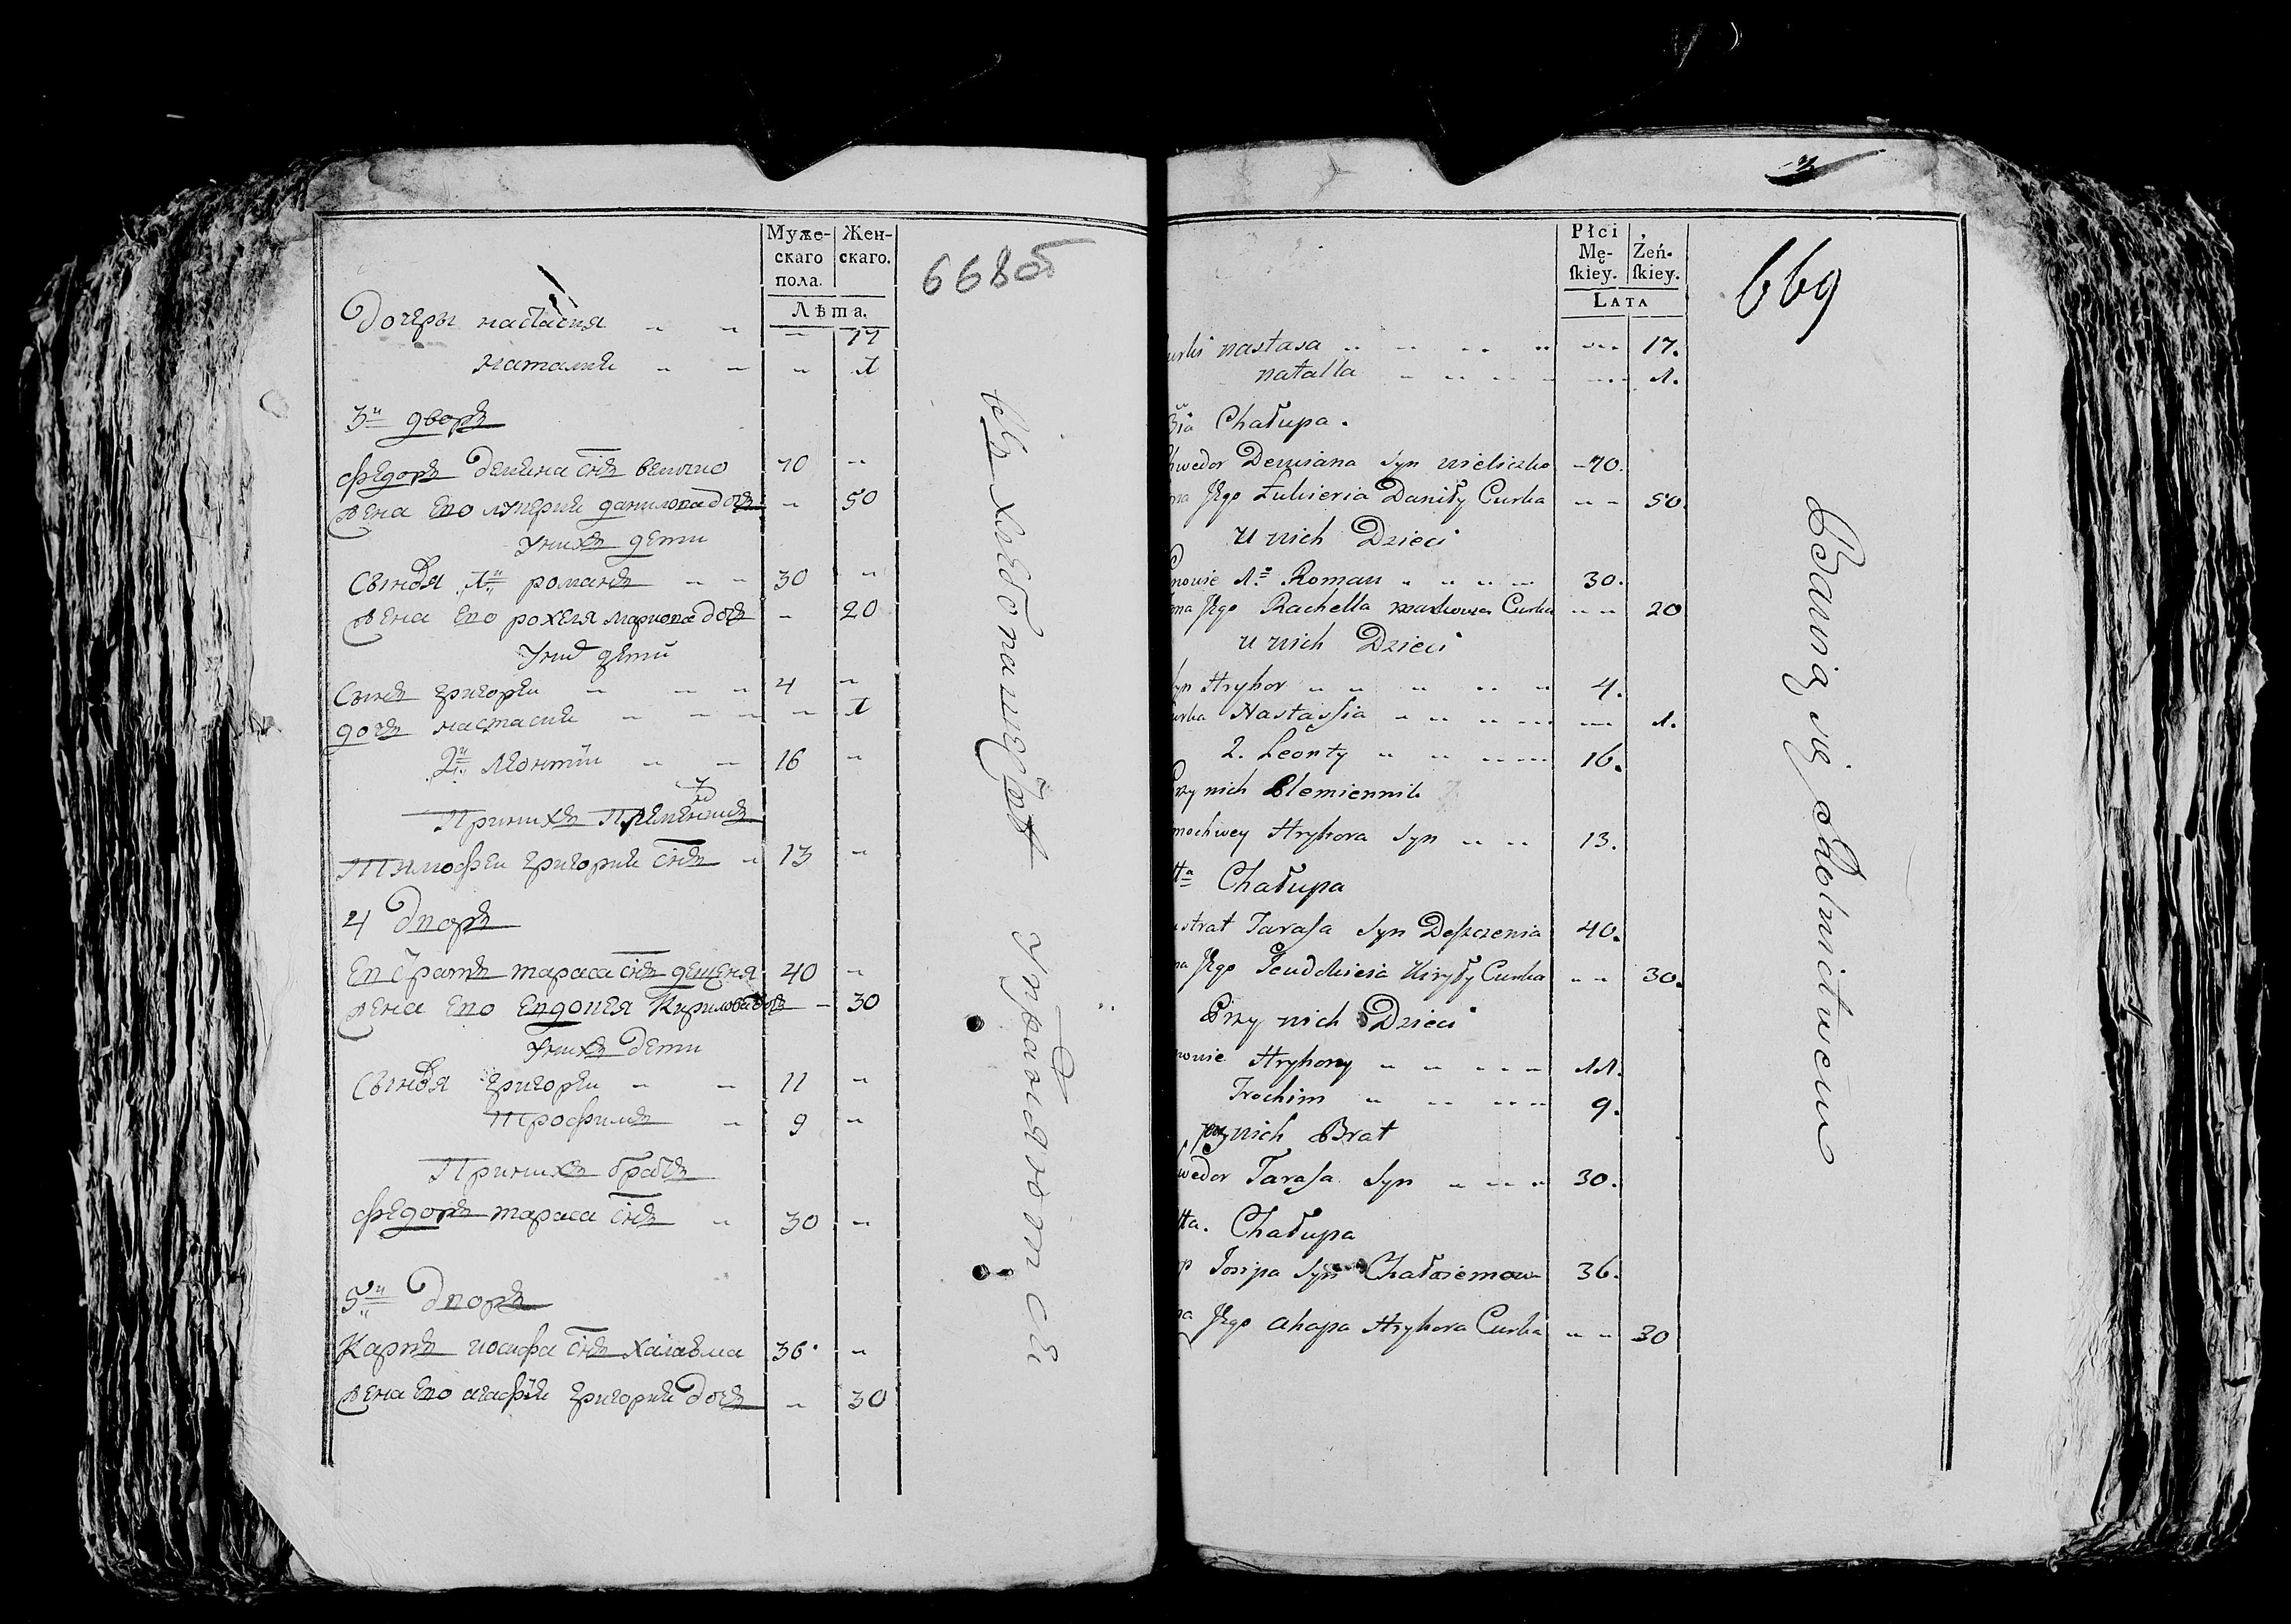 668об
Муже-
скаго
пола.
Жен-
скаго.
Лѣта.
Дочеры настасия „ „ „ 17
Наталия „ „ „ 1
3й дворъ
Федоръ Демяна снъ величко 70 „
Жена Его лукерия данилова дочь „ 50
У нихъ дети
Сыновя 1й романъ „ „ 30 „
Жена Его рохеля маркова дочь „ 20
У нихъ дети
Сынъ григореи „ „ „ 4 „
дочь настасия „ „ „ „ 1
2й леонтии „ „ 16 „
При нихъ Племенникъ
Тимофеи григория снъ „ 13 „
4 Дворъ
Евстратъ тараса снъ дещеня 40 „
Жена Его Евдокея Кирилова дочь „ 30
У нихъ дети
Сыновя григореи „ „ 11 „
Трофимъ „ 9 „
При нихъ братъ
Федоръ тараса снъ „ 30 „
5й Дворъ
Карпъ иосифа снъ халаема 36. „
Жена Его агафия григория дочь „ 30
хлебопашествомъ упражняются
669
Płci
Mę-
ſkiey.
Żeń-
ſkiey.
Lata
nastasa 17.
natalla 1.
3ia Chałupa.
Demiana Syn wieliczko 70.
Jego Łukieria Daniły Curka 50.
u nich Dzieci
1. Roman 30.
Jego Rachella markowa Curka 20
u nich Dzieci
Hryhor 4.
Nastassia 1.
2. Leonty 16.
nich Plemiennik
Hryhora Syn 13.
4ta Chałupa
Tarasa Syn Deszczenia 40.
Jego Jeudokieia Kiryły Curka 30.
Przy nich Dzieci
Hryhory 11.
Trochim 9.
przy nich Brat
Tarasa Syn 30.
Chałupa
Josipa Syn 36.
Jego ahapa Hryhora Curka 30
Bawią się Rolnictwem